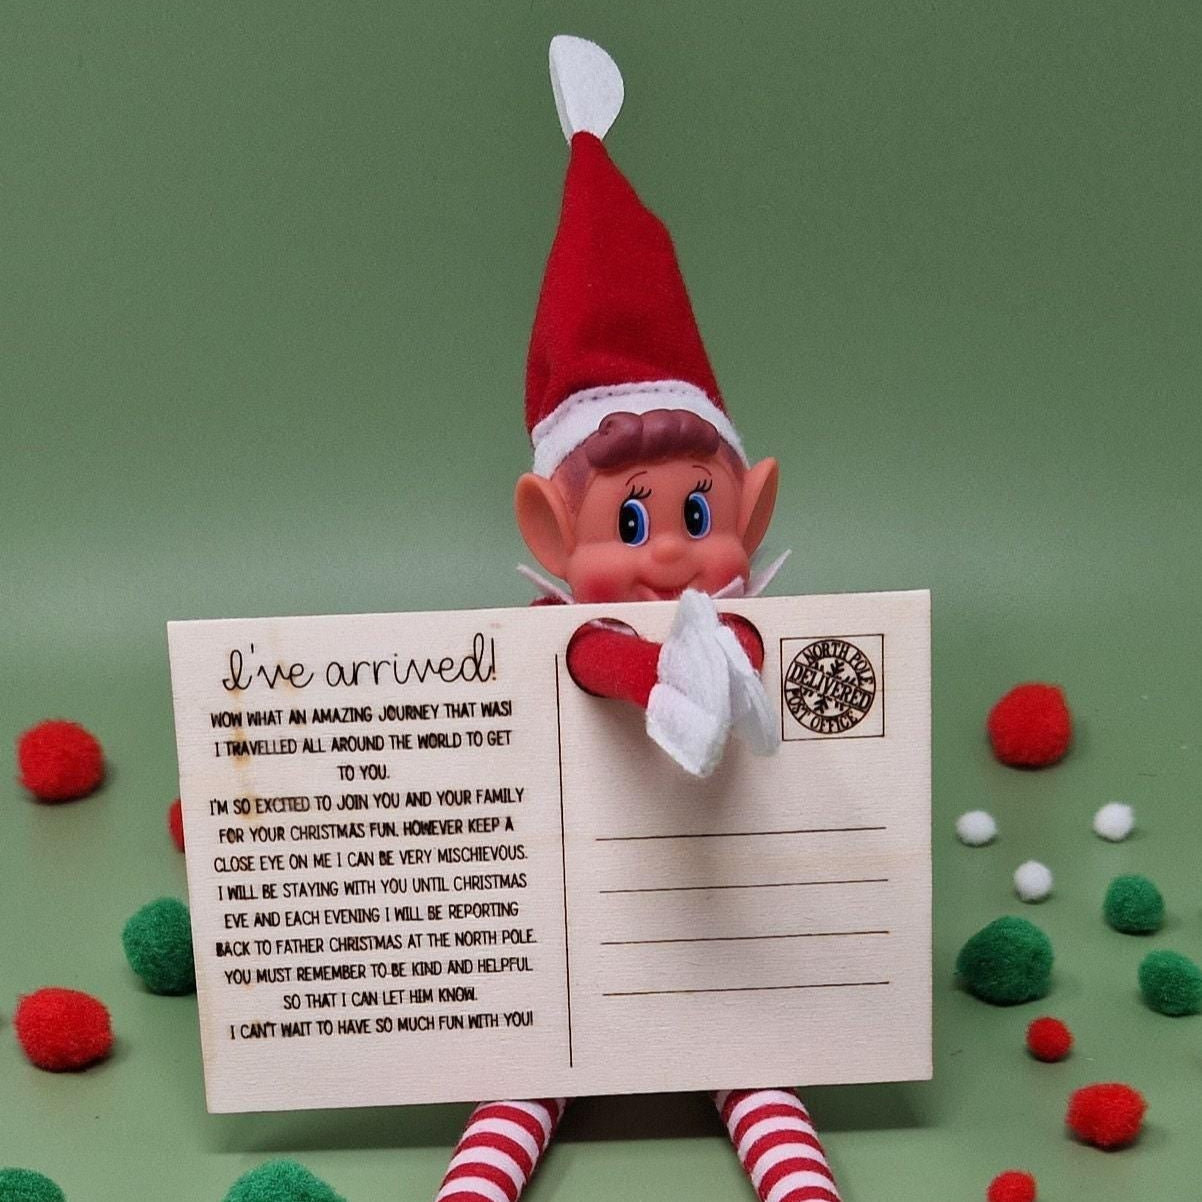 I've arrived!
WOW WHAT AN AMAZING JOURNEY THAT WAS!
I TRAVELLED ALL AROUND THE WORLD TO GET
TO YOU.
I'M SO EXCITED TO JOIN YOU AND YOUR FAMILY
FOR YOUR CHRISTMAS FUN. HOWEVER KEEP A
CLOSE EYE ON ME I CAN BE VERY MISCHIEVOUS.
I WILL BE STAYING WITH YOU UNTIL CHRISTMAS
EVE AND EACH EVENING I WILL BE REPORTING
BACK TO FATHER CHRISTMAS AT THE NORTH POLE.
YOU MUST REMEMBER TO BE KIND AND HELPFUL
SO THAT I CAN LET HIM KNOW.
I CAN'T WAIT TO HAVE SO MUCH FUN WITH YOU!
NORTH POLE
DELIVERED
POST OFFICE